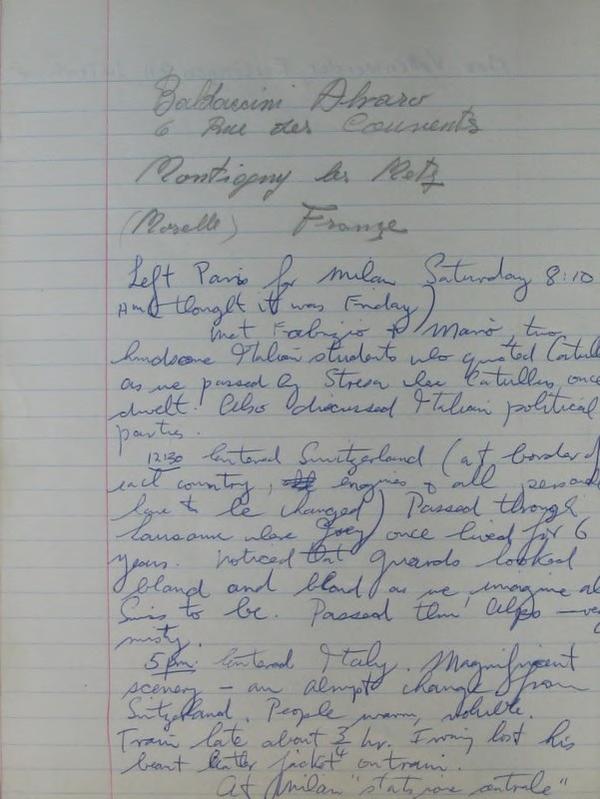 Baldaccini Alvaro
6 Rue des Couvents
Montigny les Metz
(Moselle) France
Left Paris for Milan Saturday 8:10
AM (thought it was Friday)
Met Fabrizio & Mario, two
handsome Italian students who quoted Catull
as we passed by Stresa where Catullus once
dwelt. Also discussed Italian political
parties.
12:30 Entered Switzerland (at border of
each country, engines & all personn
have to be changed) Passed through
Lausanne where Joey once lived for 6
years. Noticed that guards looked
bland and blond as we imagine al
Swiss to be. Passed thru' Alps — ve
misty.
5 pm. Entered Italy. Magnificent
scenery — an abrupt change from
Switzerland. People warm, voluble.
Train late about 3/4 hr. Irving lost his
jacket on train.
At Milan "stazione centrale"